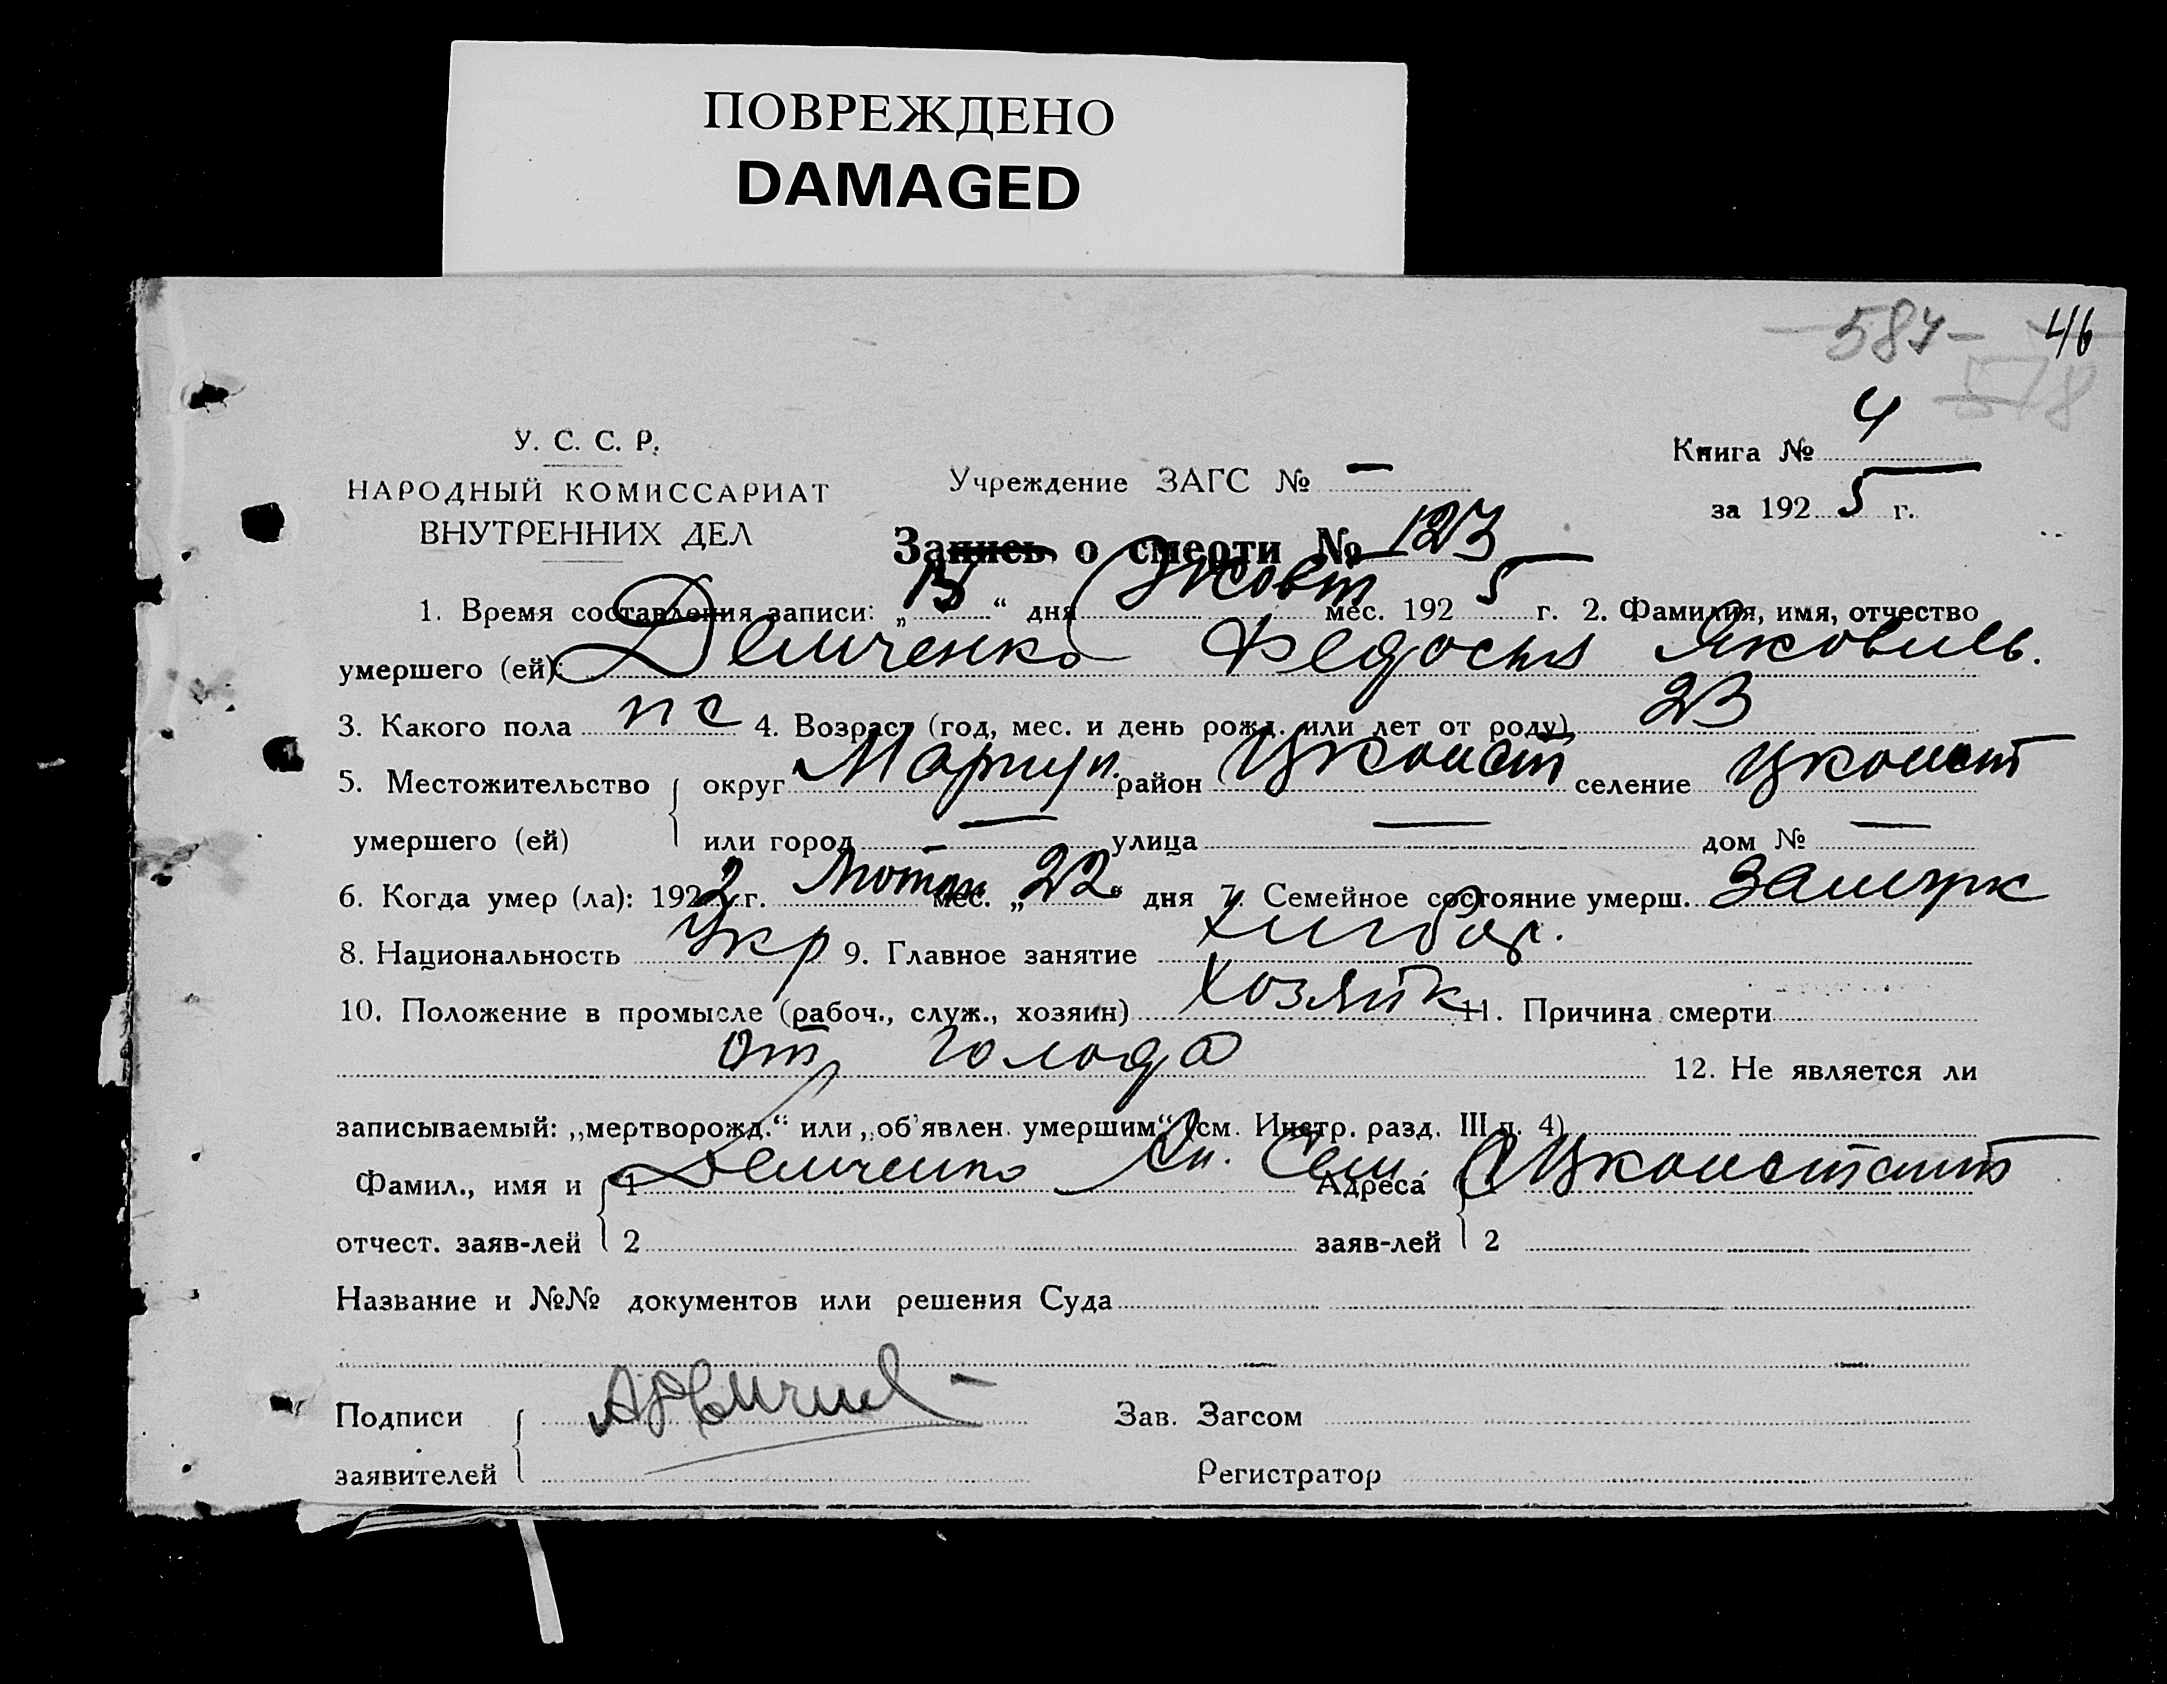 ПОВРЕЖДЕНО
DAMAGED
587 46
578
У. С. С. Р.
НАРОДНЫЙ КОМИССАРИАТ
ВНУТРЕННИХ ДЕЛ
Учреждение ЗАГС № —
Книга № 4
за 192 5 г.
Запись о смерти № 123
1. Время составления записи: „ 15 “ дня Жовт мес. 192 5 г. 2. Фамилия, имя, отчество
умершего (ей): Демченко Федосья Яковиль.
3. Какого пола 4. Возраст (год, мес. и день рожд. или лет от роду) 23
5. Местожительство округ Мариуп. район Цконст селение Цконст
умершего (ей) или город — улица — дом № —
6. Когда умер (ла): 192 2 г. Лютан мес. „ 22 “ дня 7. Семейное состояние умерш. Замуж
8. Национальность Укр 9. Главное занятие Хлибор.
10. Положение в промысле (рабоч., служ., хозяин) Хозяйк 11. Причина смерти
от голода 12. Не является ли
записываемый: „мертворожд.“ или „об'явлен. умершим“ (см. Инстр. разд. III п. 4)
Фамил., имя и 1 Демченко Ан. Сем. Адреса 1 Цконстант
отчест. заяв-лей 2 заяв-лей 2
Название и №№ документов или решения Суда
Подписи
заявителей
Зав. Загсом
Регистратор